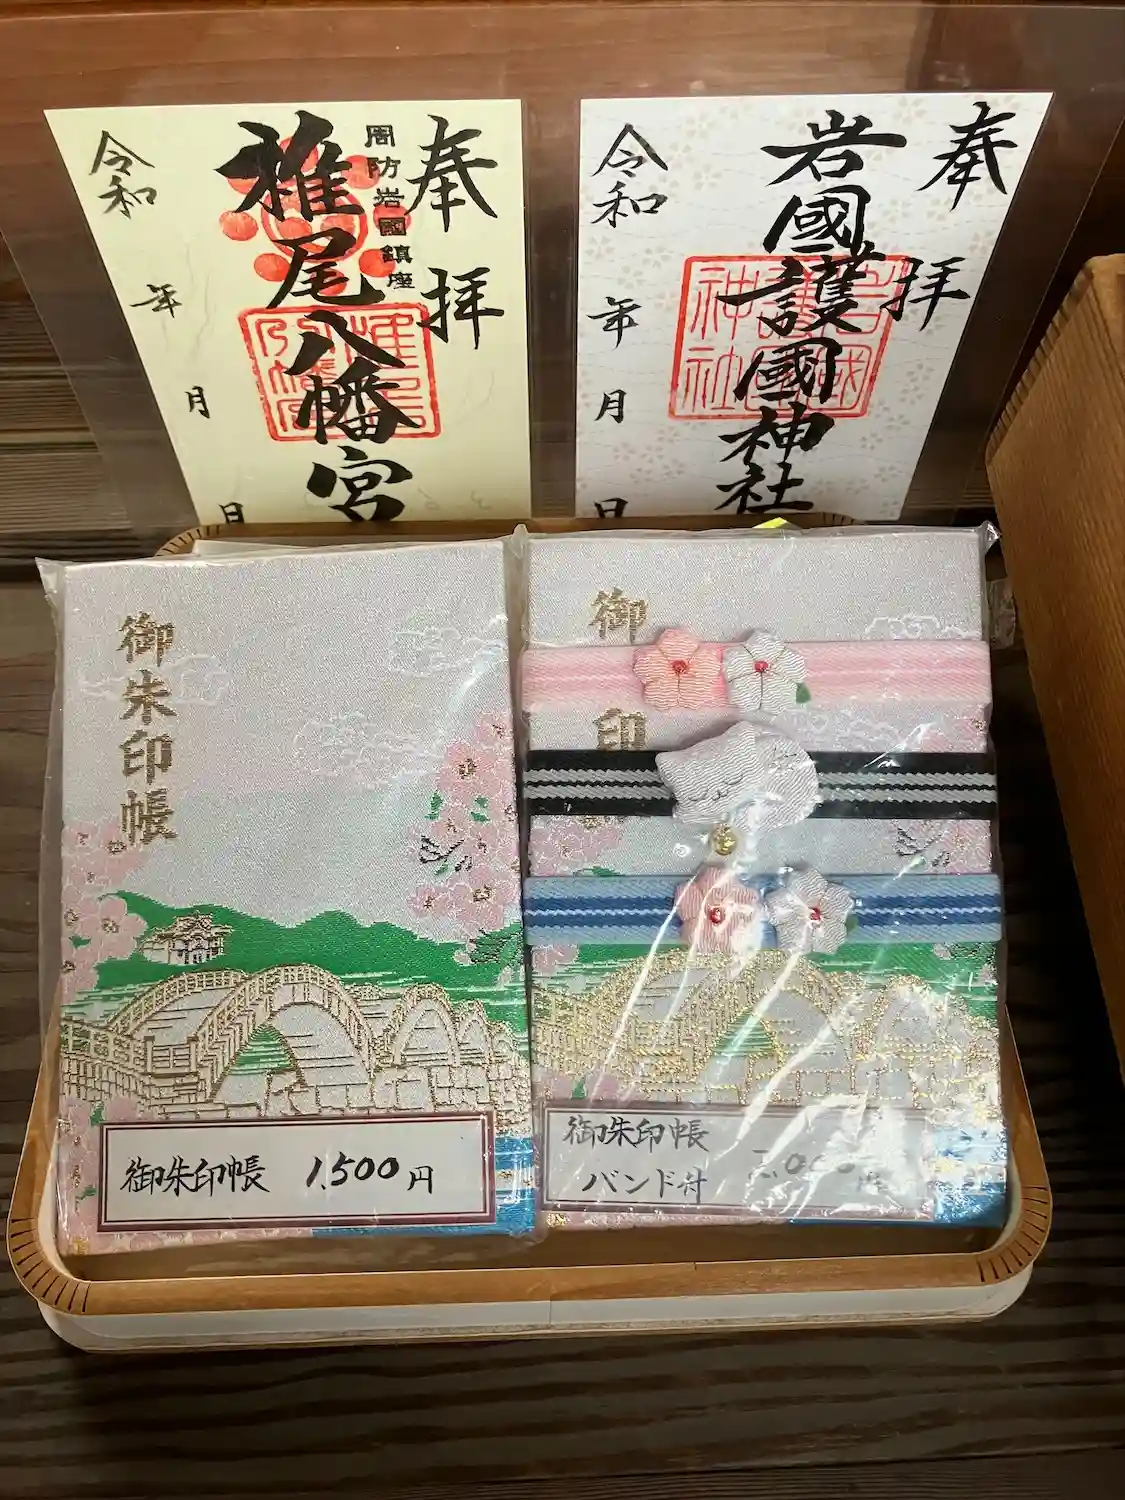 奉拝
岩國護國神社
令和
年
月
日
奉拝
周防岩國鎮座
椎尾八幡宮
令和
年
月
日
御朱印帳
御朱印帳 1,500円
御
印
御朱印帳
バンド付